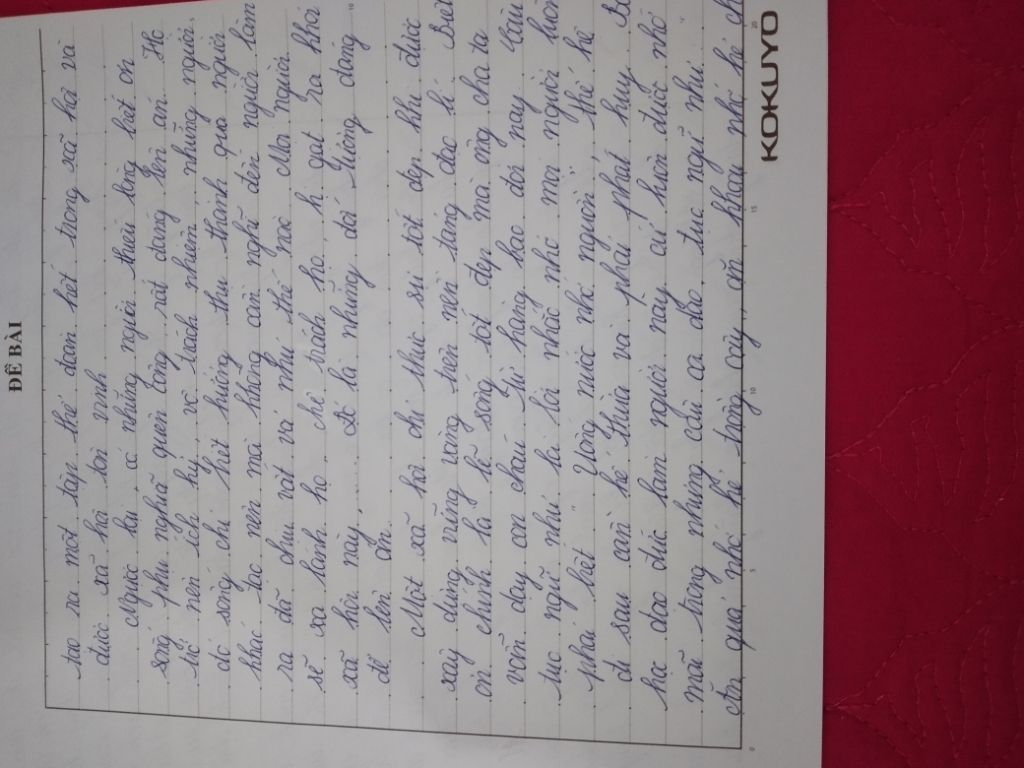 ĐỀ BÀI
tạo ra một tập thể đoàn kết trong xã hội và
được xã hội tôn vinh
Ngược lại có những người thiếu lòng biết ơn
sống phụ nghĩa quên công rất đáng lên án. Họ
trở nên ích kỷ, vô trách nhiệm những người
đó sống chỉ biết hưởng thụ thành quả người
khác tạo nên mà không cần nghĩ đến người làm
ra dã như vất vả như thế nào Mọi người
sẽ xa lánh họ, chê trách họ, bị gạt ra khỏi
xã hội này, ...... Đó là những dối tượng đáng
để lên án.
Một xã hội chỉ thực sự tốt đẹp khi được
xây dựng vững vàng trên nền tảng đạo lí
ơn chính là lẽ sống tốt đẹp mà ông cha ta
vẫn dạy con cháu từ hàng bao đời nay. Câu
tục ngữ như là lời nhắc nhở mọi người luôn
phải biết " Uống nước nhớ nguồn", thế hệ
đi sau cần kế thừa và phải phát huy
học đạo đức làm người này cứ luôn được nhớ
mãi trong những câu ca dao, tục ngữ như:
Ăn quả nhớ kẻ trồng cây, ăn khoai nhớ kẻ
0 5 10 15 20
KOKUYO